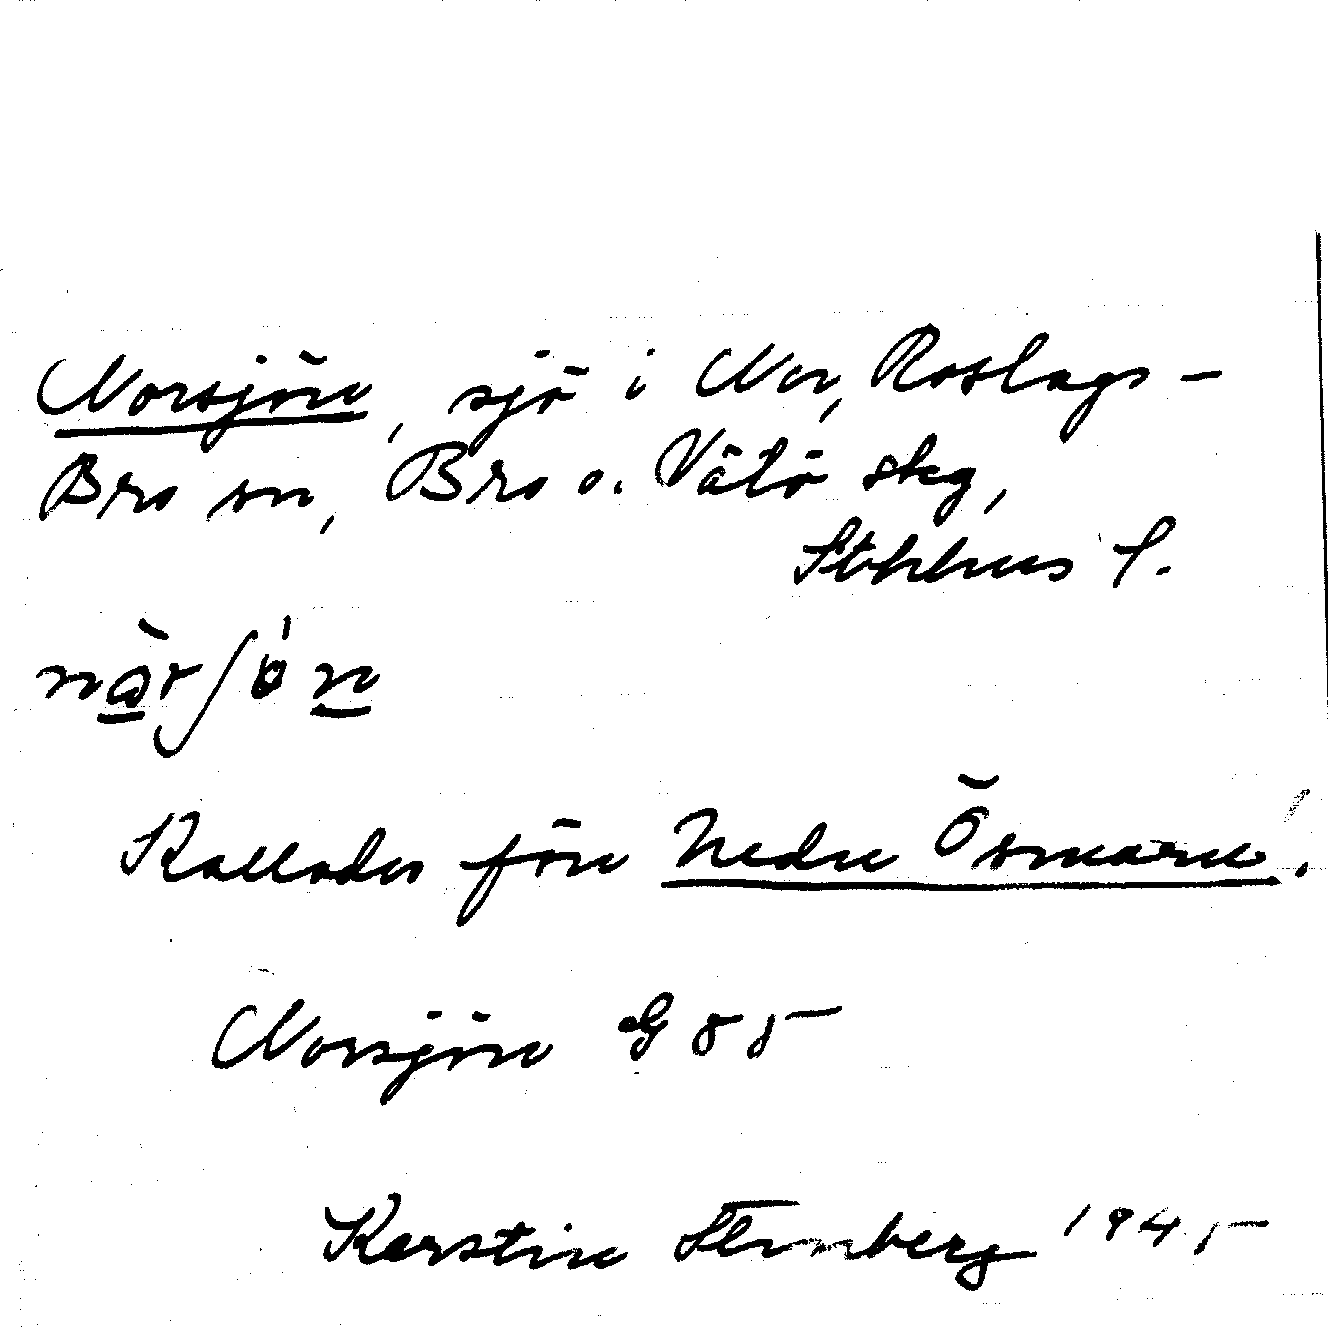 Norsjön, sjö i Nor, Roslags-
Bro sn, Bro o. Vätö skg,
Sthlms l.
nòrʃön
Kallades förr Nedre Ösmaren.
Norsjön G 85
Kerstin Sternberg 1945